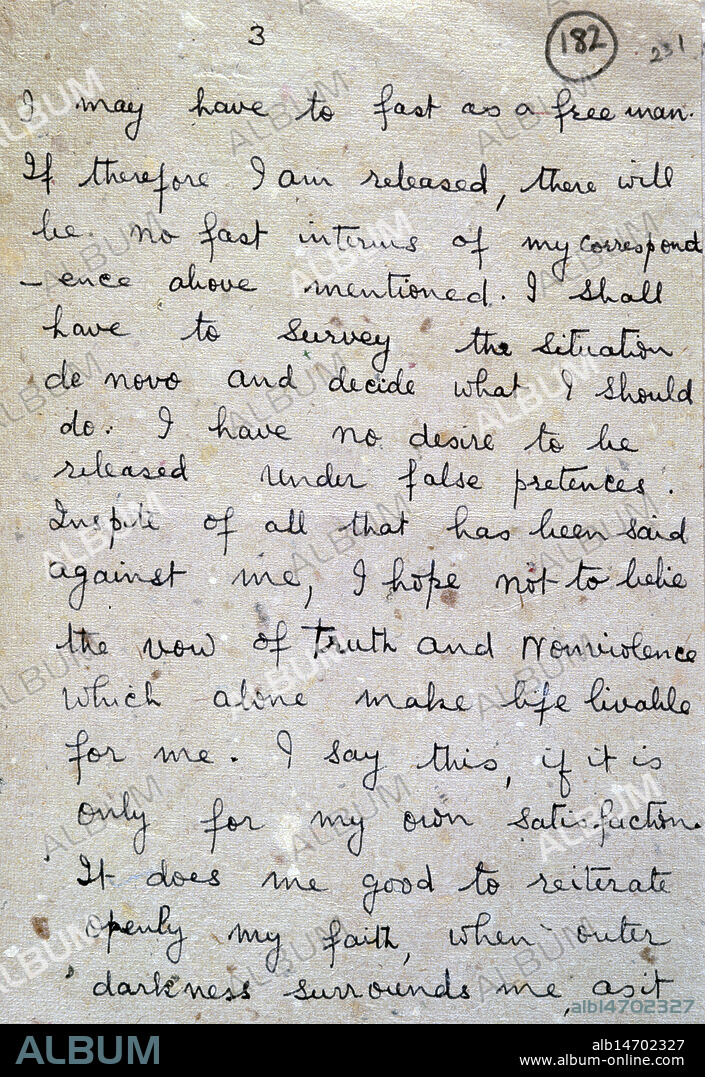 3
182
231
I may have to fast as a free man.
If therefore I am released, there will
be no fast interms of my correspond
-ence above mentioned. I shall
have to survey the situation
de novo and decide what I should
do. I have no desire to be
released under false pretences.
Inspite of all that has been said
against me, I hope not to belie
the vow of Truth and Nonviolence
which alone make life livable
for me. I say this, if it is
only for my own satisfaction.
It does me good to reiterate
openly my faith, when outer
darkness surrounds me, as it
alb14702327
ALBUM
alb14702327
www.album-online.com